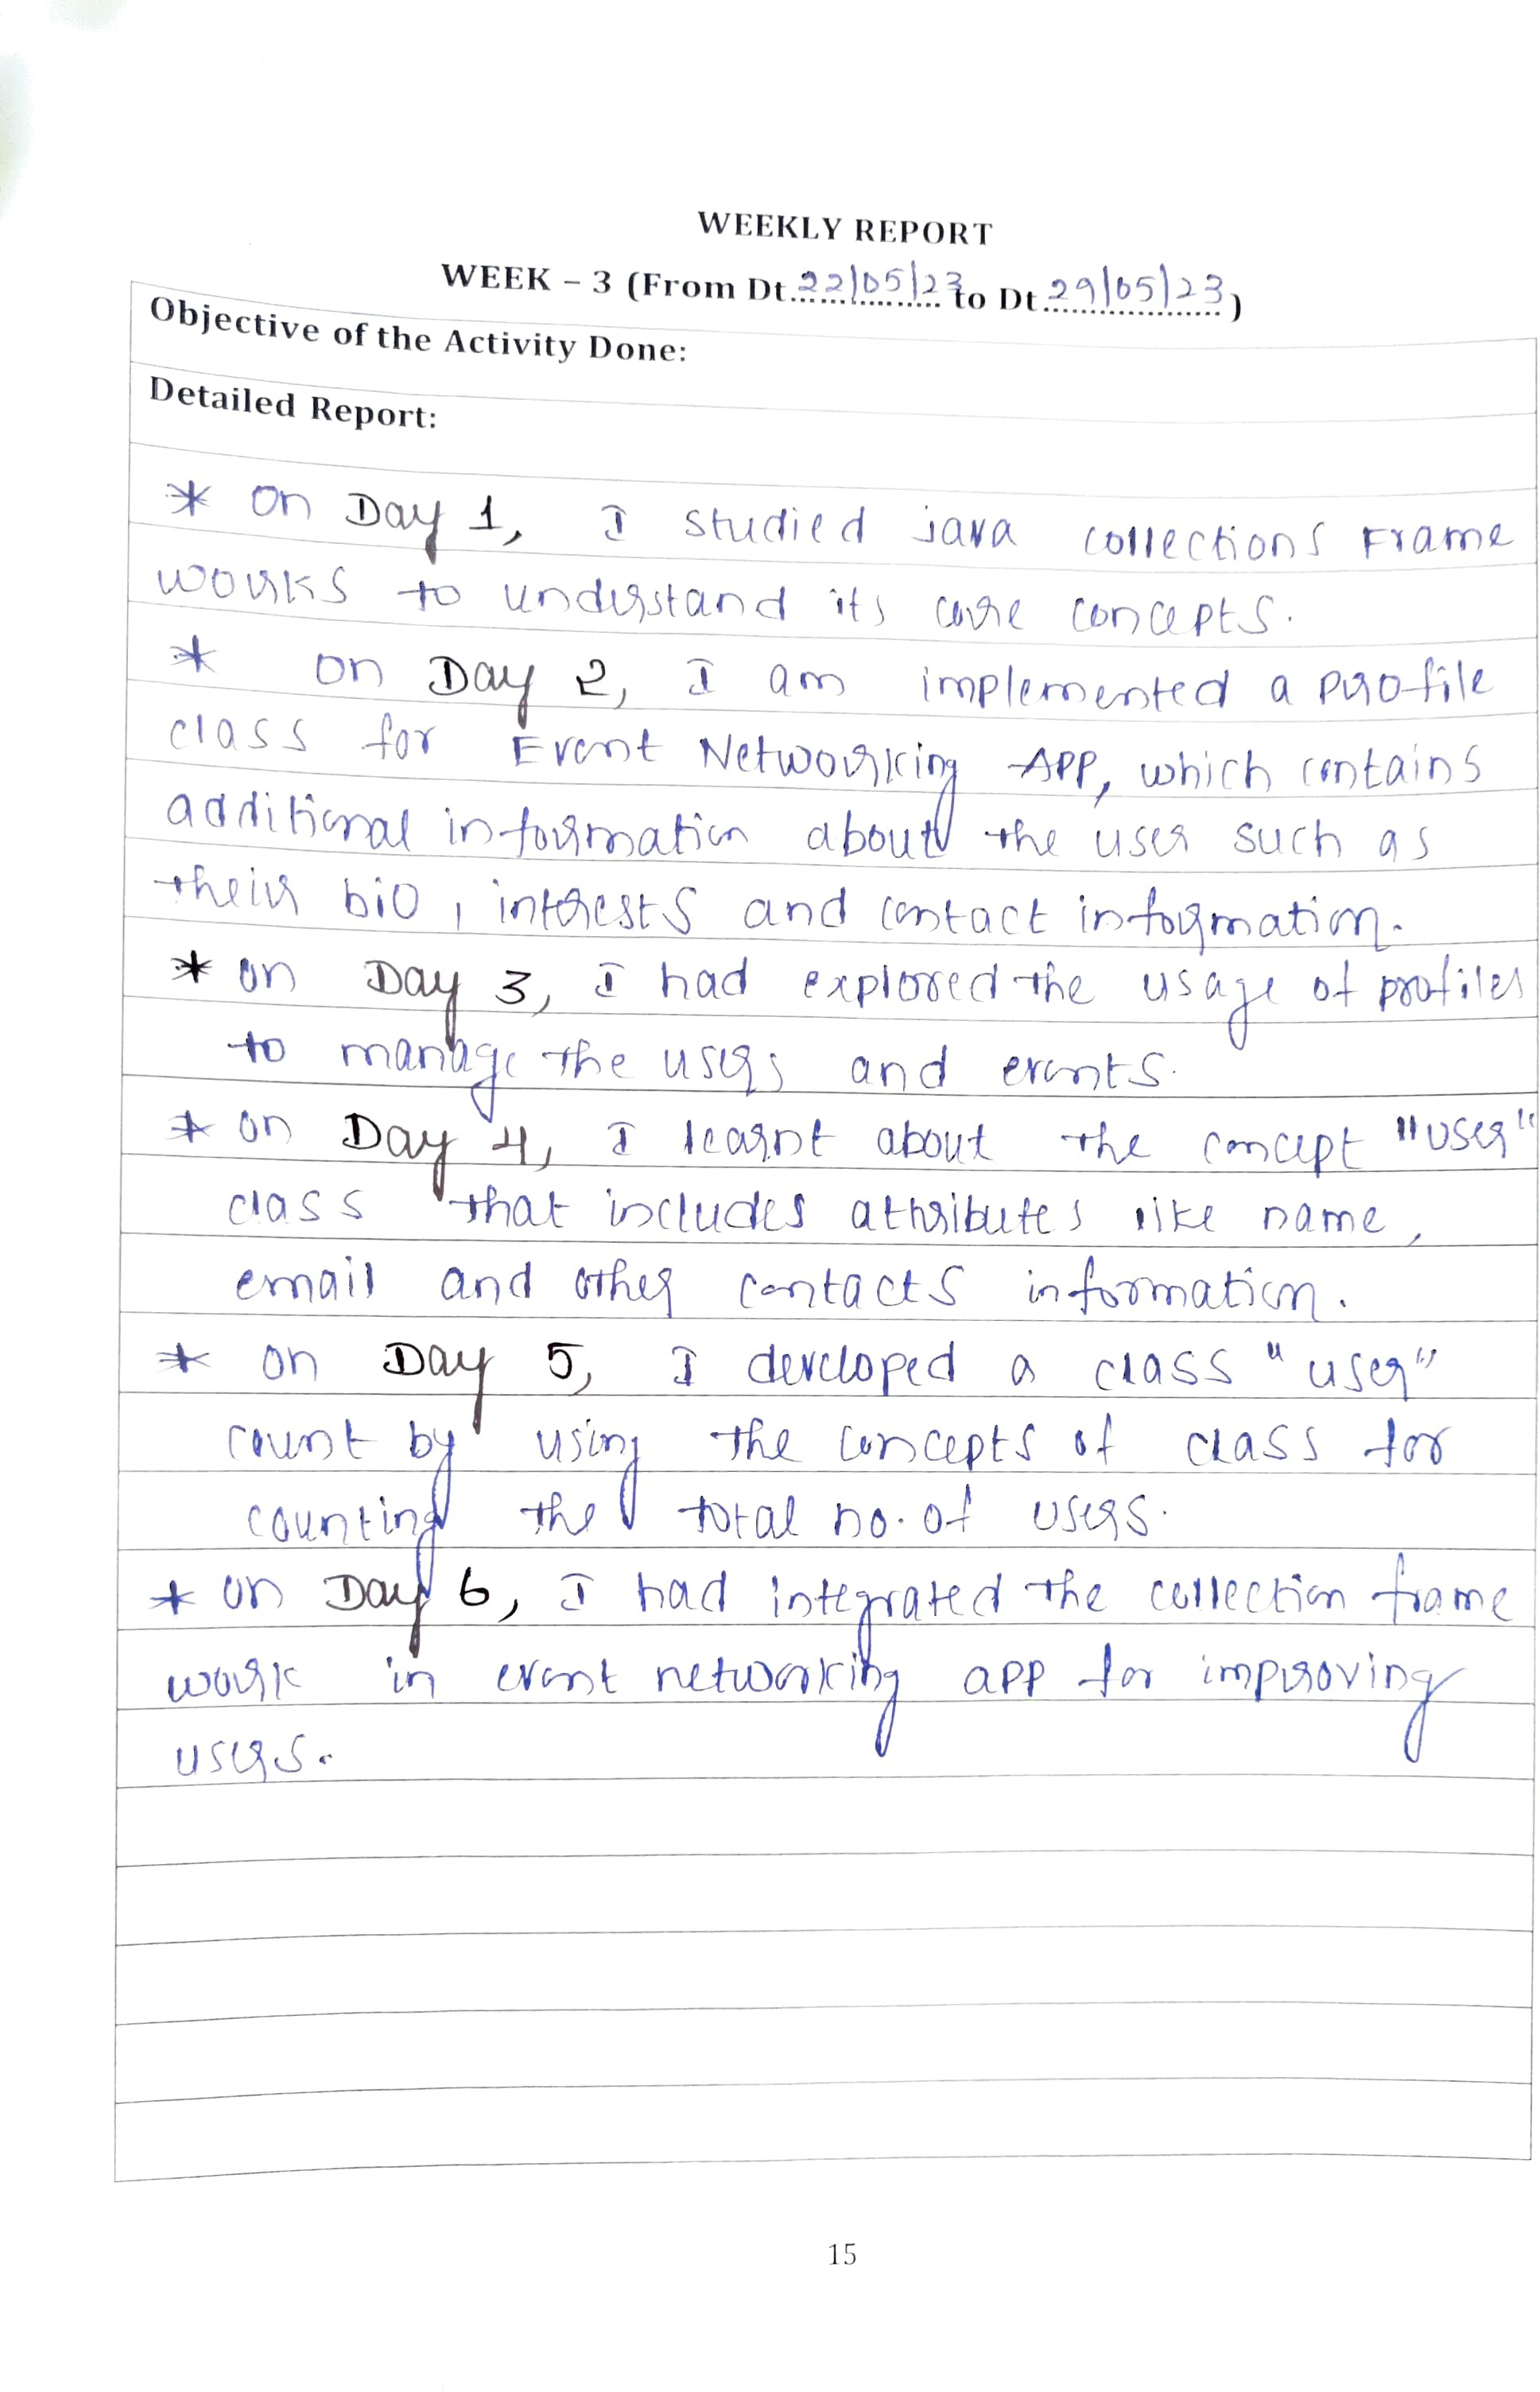 WEEKLY REPORT
WEEK – 3 (From Dt 22/05/23 to Dt 29/05/23)
Objective of the Activity Done:
Detailed Report:
* on Day 1, I studied java collections Frame
works to understand its core concepts.
* on Day 2, I am implemented a profile
class for Event Networking App, which contains
additional information about the user such as
their bio, interests and contact information.
* on Day 3, I had explored the usage of profiles
to manage the users and events.
* on Day 4, I learnt about the concept "user"
class that includes attributes like name,
email and other contacts information.
* on Day 5, I developed a class "user"
count by using the concepts of class for
counting the total no. of users.
* on Day 6, I had integrated the collection frame
work in event networking app for improving
users.
15